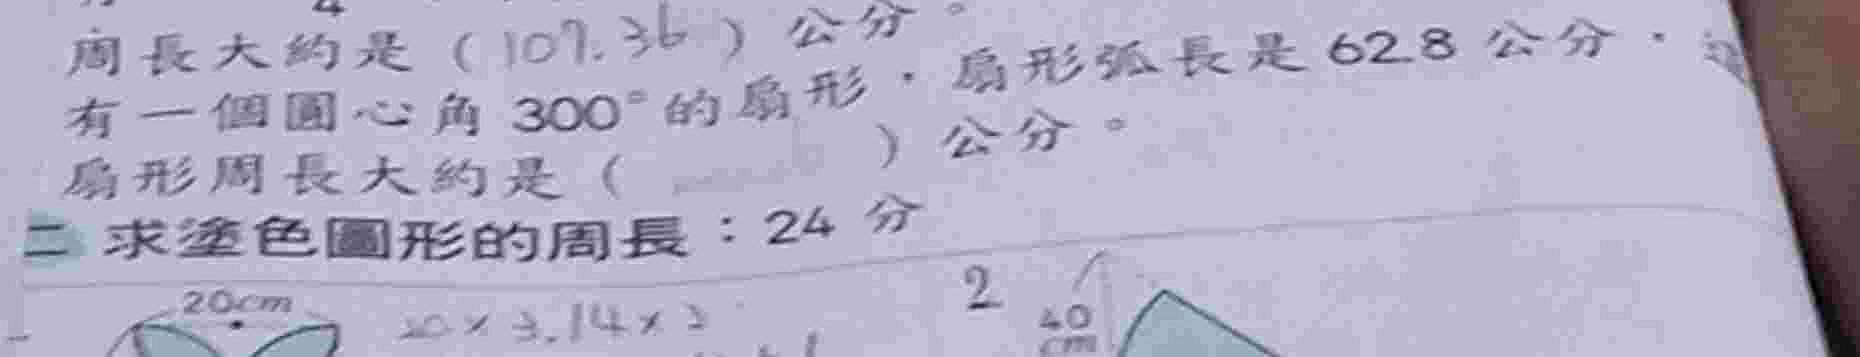 周長大約是（107.36）公分。
有一個圓心角300°的扇形，扇形弧長是62.8公分，這
扇形周長大約是（ ）公分。
二 求塗色圖形的周長：24 分
20cm
20×3.14×2
2
40
cm